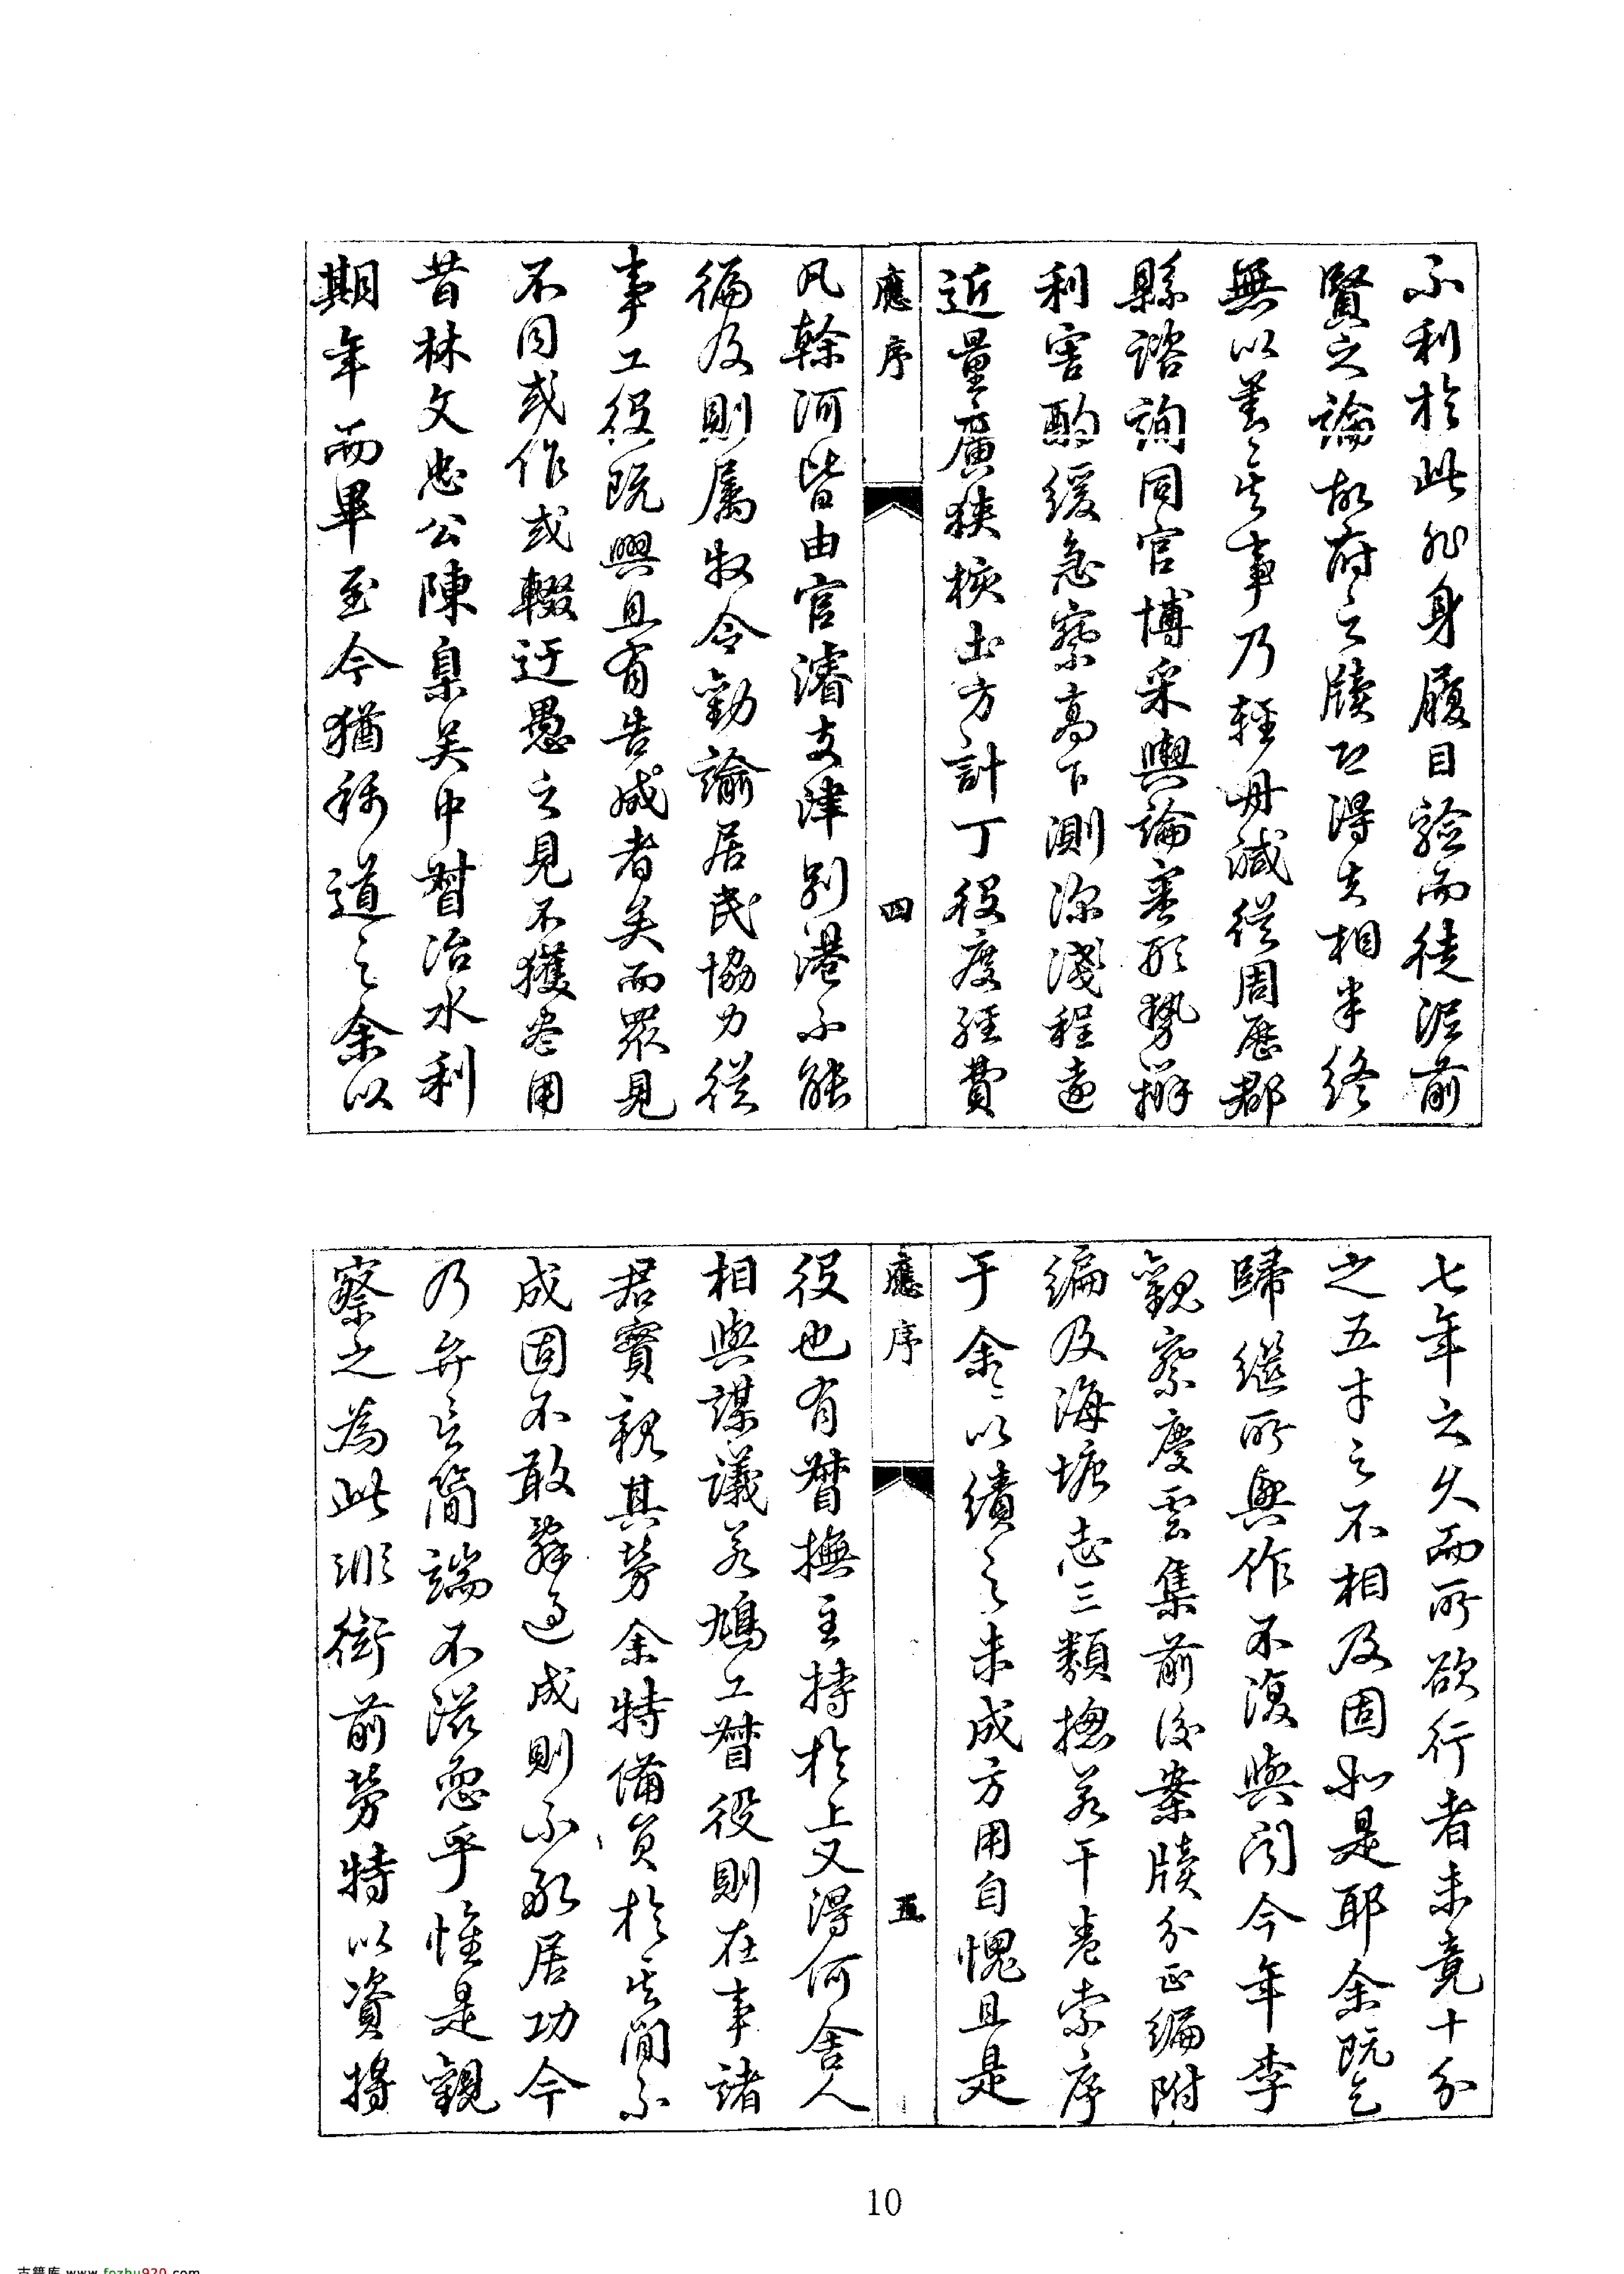 不利於此非身履目驗而徒泥前
賢之論故府之牘恐得失相半終
無以善之其事乃輕毋緘從周歷郡
縣諮詢同官博采輿論審形勢辨
利害酌緩急察高下測深淺程遠
近量廣狹核土方計丁役度經費
應序
四
凡榦河皆由官濬支津別港不能
徧及則屬牧令勸諭居民協力從
事工役既興且有告成者矣而眾見
不同或作或輟迂愚之見不獲盡用
昔林文忠公陳臬吳中督治水利
期年而畢至今猶稱道之余以
七年之久而所欲行者未竟十分
之五才之不相及固如是耶余既乞
歸繼所興作不復與聞今年李
觀察慶雲集前後案牘分正編附
編及海塘志三類揔若干卷索序
于余余以績之未成方用自愧且是
應序
五
役也有督撫主持於上又得何舍人
相與謀議若鳩工督役則在事諸
君實親其勞余特備員於其間不
成固不敢辭過成則不敢居功今
乃弁言簡端不滋恧乎惟是觀
察之為此非衒前勞特以資將
10
古籍库 www.fozhu920.com